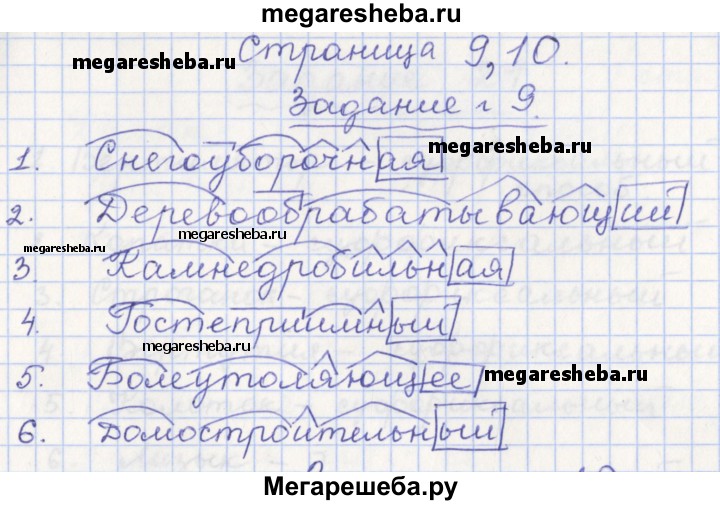 megaresheba.ru
Страница 9,10.
megaresheba.ru
Задание г 9.
megaresheba.ru
1. Снегоуборочная
2. Деревообрабатывающий
megaresheba.ru
megaresheba.ru
3. Камнедробильная
4. Гостеприимный
megaresheba.ru
5. Болеутоляющее
megaresheba.ru
6. Домостроительный
Мегарешеба.ру